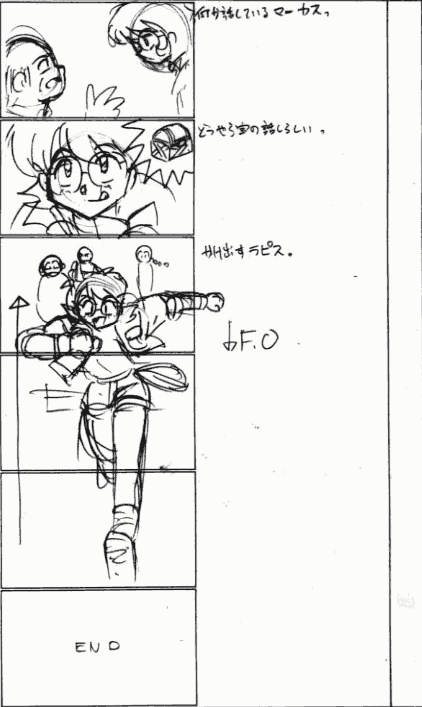 何か話しているマーカス。
どうやら宝の話しらしい。
かけ出すラピス。
↓F.O
END